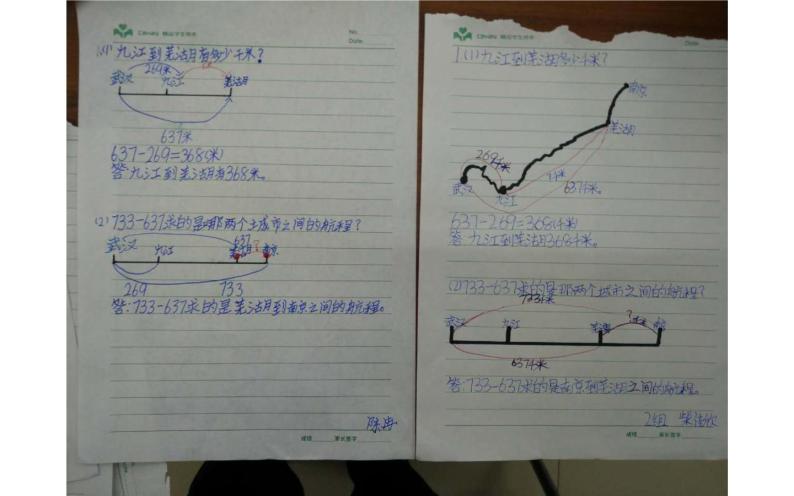 (1)九江到芜湖有多少千米?
269米
武汉
九江
芜湖
637米
637-269=368(米)
答:九江到芜湖有368米。
(2)733-637求的是哪两个城市之间的航程?
武汉
九江
637
芜湖
?
南京
269
733
答:733-637求的是芜湖到南京之间的航程。
成绩
家长签字
No.
Date
1(1)九江到芜湖多少千米?
南京
芜湖
269千米
?千米
637千米
武汉
九江
637-269=368(千米)
答:九江到芜湖368千米。
(2)733-637求的是哪两个城市之间的航程?
733千米
武汉
九江
芜湖
?千米
南京
637千米
答:733-637求的是南京到芜湖之间的航程。
2组
成绩
家长签字